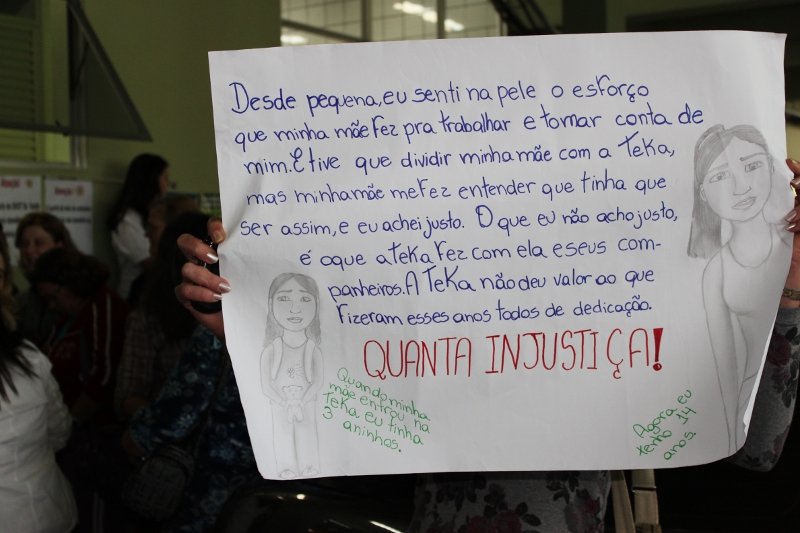 Desde pequena, eu senti na pele o esforço
que minha mãe fez pra trabalhar e tomar conta de
mim. E tive que dividir minha mãe com a Teka,
mas minha mãe me fez entender que tinha que
ser assim, e eu achei justo. O que eu não acho justo,
é o que a Teka fez com ela e seus com-
panheiros. A Teka não deu valor ao que
fizeram esses anos todos de dedicação.
QUANTA INJUSTIÇA!
Quando minha
mãe entrou na
Teka eu tinha
3 aninhos.
Agora eu
tenho 14
anos.